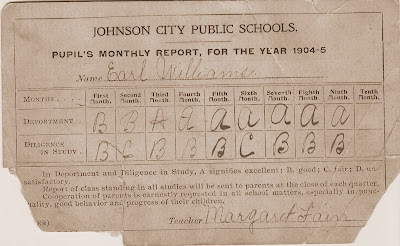 JOHNSON CITY PUBLIC SCHOOLS.
PUPIL'S MONTHLY REPORT, FOR THE YEAR 1904-5
Name Earl Williams
MONTHS. First Month. Second Month. Third Month. Fourth Month. Fifth Month. Sixth Month. Seventh Month. Eighth Month. Ninth Month. Tenth Month.
DEPARTMENT B B A A A A A A A
DILIGENCE IN STUDY. B C B B B C B B B
In Department and Diligence in Study, A signifies excellent; B, good; C, fair; D, un-
satisfactory.
Report of class standing in all studies will be sent to parents at the close of each quarter.
Cooperation of parents is earnestly requested in all school matters, especially in punc-
tuality, good behavior and progress of their children.
Teacher Margaret Fain